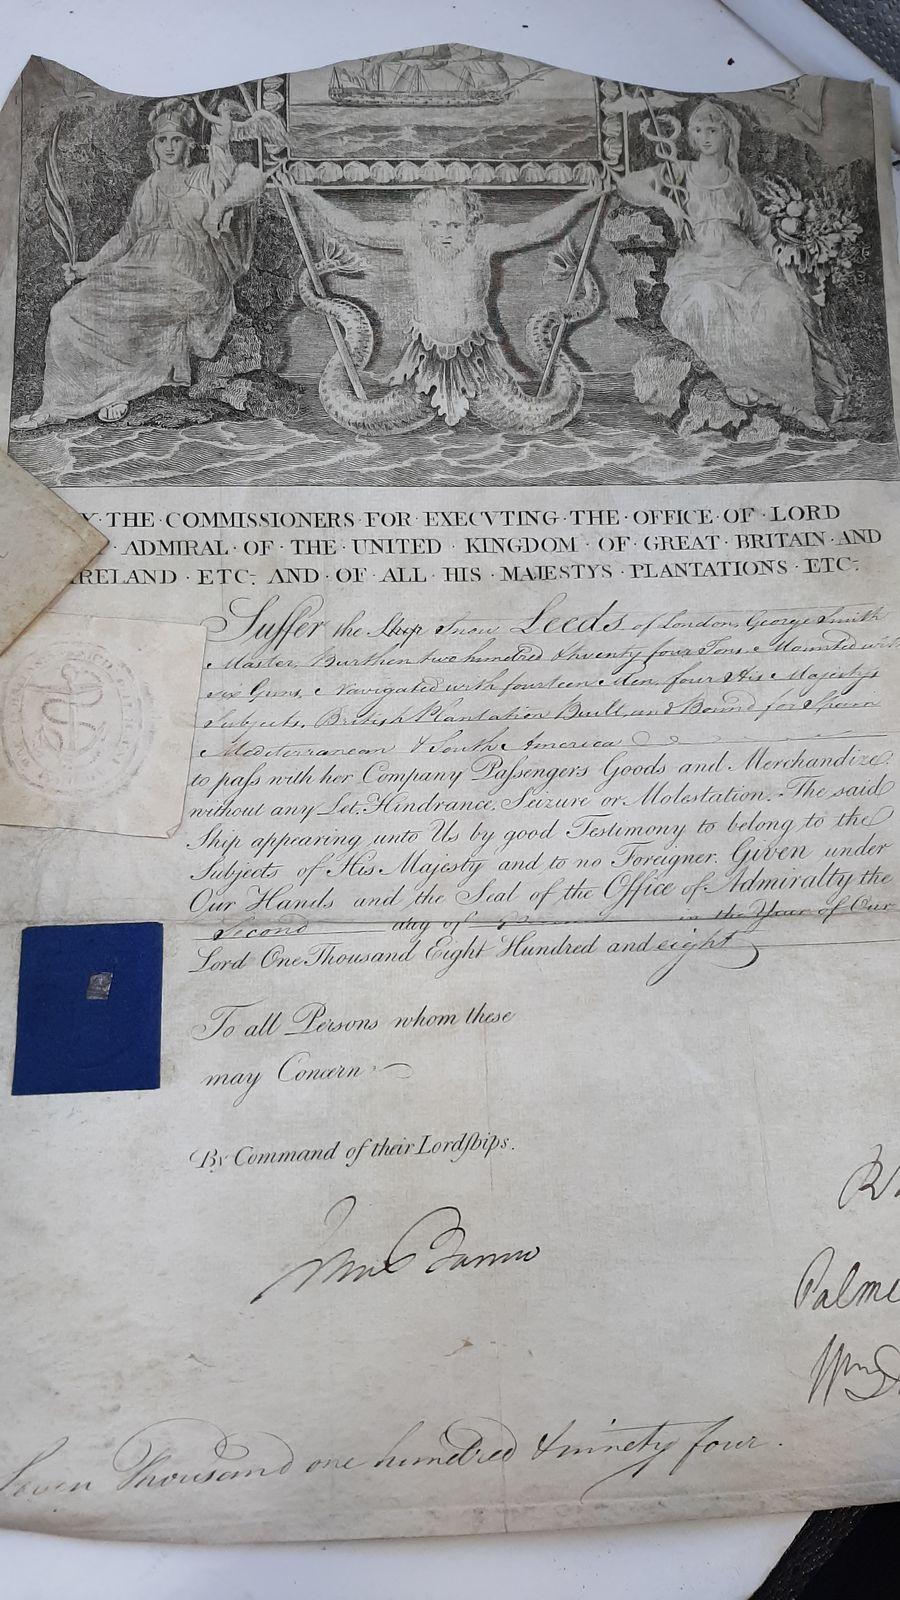 Y · THE · COMMISSIONERS · FOR · EXECVTING · THE · OFFICE · OF · LORD
· ADMIRAL · OF · THE · UNITED · KINGDOM · OF · GREAT · BRITAIN · AND
IRELAND · ETC. AND · OF · ALL · HIS · MAJESTYS · PLANTATIONS · ETC.
Suffer the Ship Snow Leeds of London, George Smith
Master, Burthen two hundred & twenty four Tons, Mounted with
six Guns, Navigated with fourteen Men, four His Majestys
Subjects, British Plantation Built, and Bound for
Mediterranean & South America
to pass with her Company Passengers Goods and Merchandize
without any Let, Hindrance, Seizure or Molestation. The said
Ship appearing unto Us by good Testimony to belong to the
Subjects of His Majesty and to no Foreigner. Given under
Our Hands and the Seal of the Office of Admiralty the
Second day of in the Year of Our
Lord One Thousand Eight Hundred and eight
To all Persons whom these
may Concern
By Command of their Lordships.
Palme
Wm
Seven Thousand one hundred & ninety four.